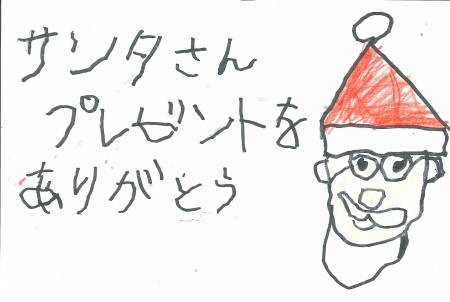 サンタさん
プレゼントを
ありがとう